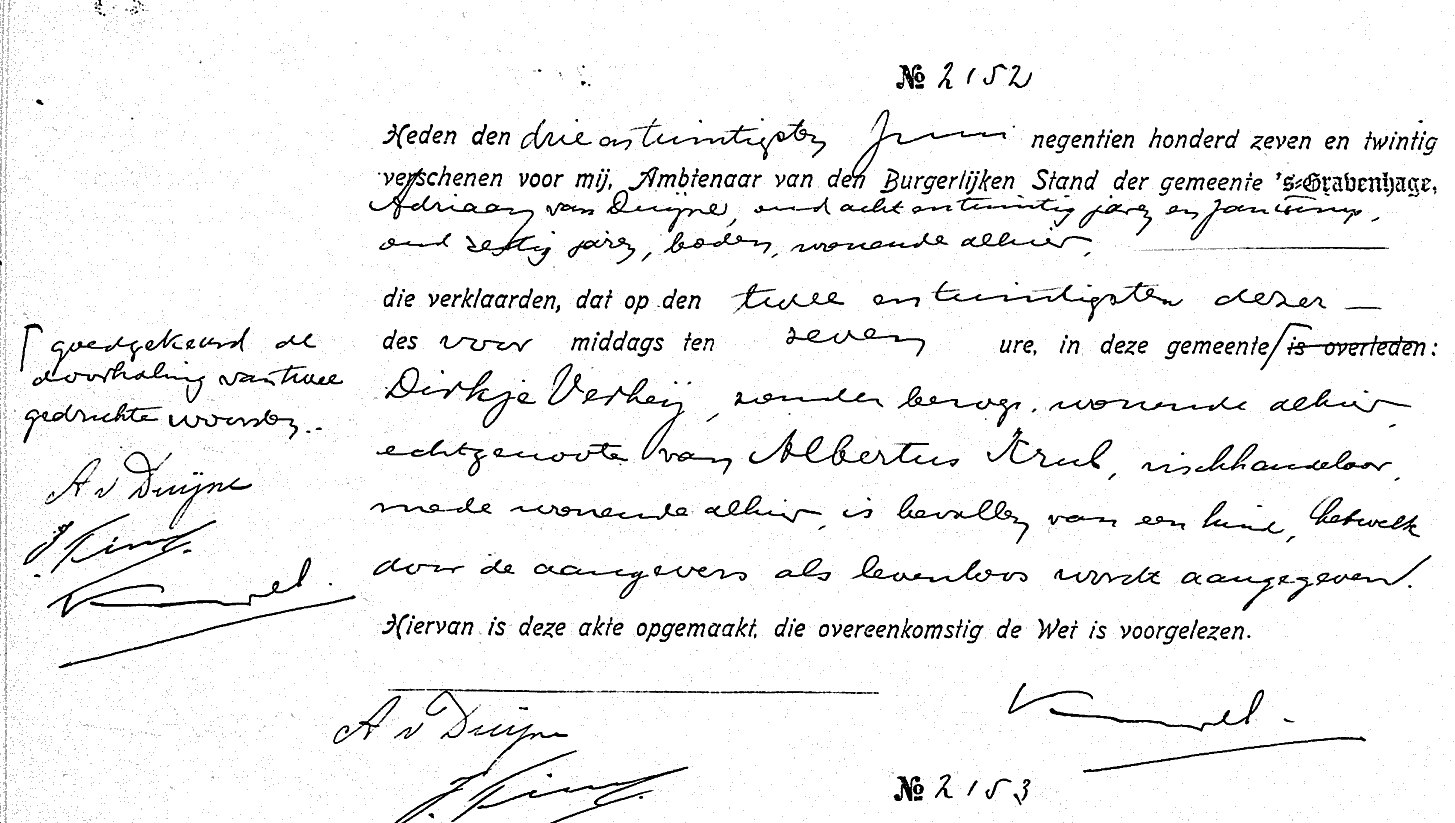 No 2152
Heden den drie en twintigsten Juni negentien honderd zeven en twintig
verschenen voor mij, Ambtenaar van den Burgerlijken Stand der gemeente 's-Gravenhage,
Adriaan van Duijne, oud acht en twintig jaren en Jan
oud zestig jaren, boden, wonende alhier,
die verklaarden, dat op den twee en twintigsten dezer —
des voor middags ten zeven ure, in deze gemeente is overleden:
Dirkje Verheij, zonder beroep, wonende alhier,
echtgenoote van Albertus Krul, vischhandelaar,
mede wonende alhier, is bevallen van een kind, hetwelk
door de aangevers als levenloos wordt aangegeven.
Hiervan is deze akte opgemaakt, die overeenkomstig de Wet is voorgelezen.
goedgekeurd de
doorhaling van twee
gedrukte woorden.
A v Duijne
A v Duijne
No 2153